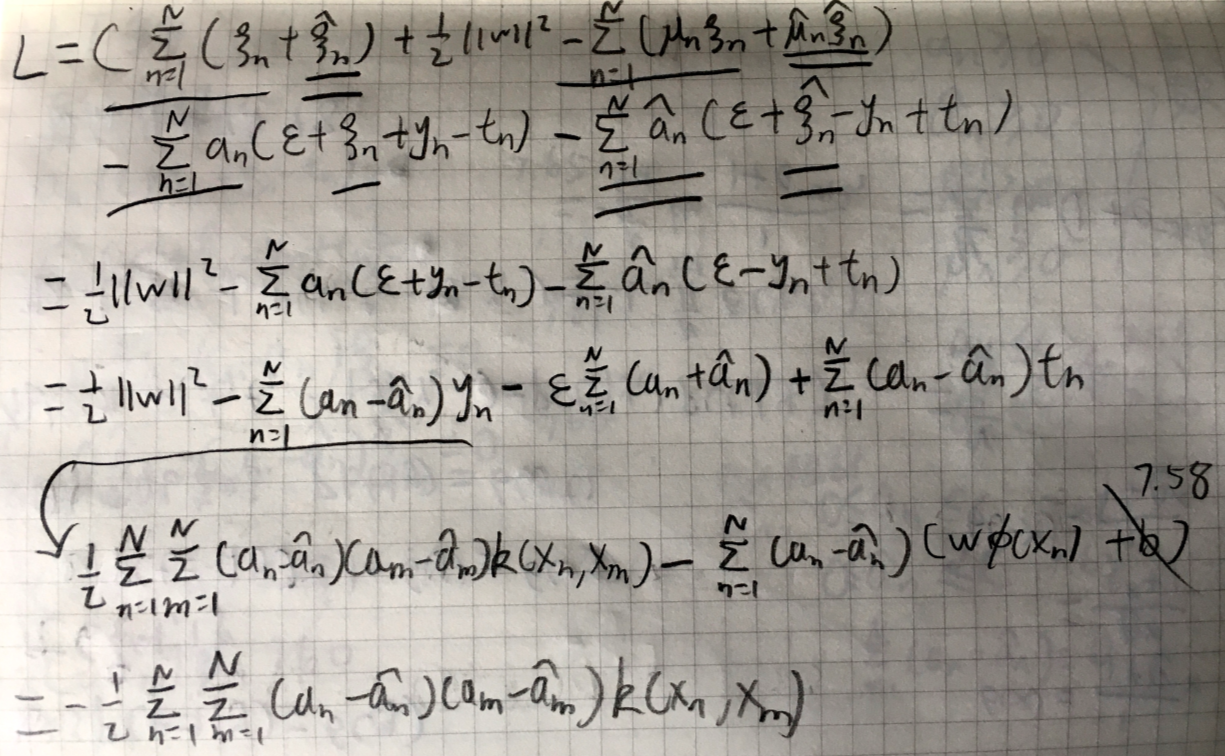 L = C Σ_{n=1}^{N} (ξ_n + ξ̂_n) + ½ ||w||² − Σ_{n=1}^{N} (μ_n ξ_n + μ̂_n ξ̂_n)
− Σ_{n=1}^{N} a_n (ε + ξ_n + y_n − t_n) − Σ_{n=1}^{N} â_n (ε + ξ̂_n − y_n + t_n)
= ½ ||w||² − Σ_{n=1}^{N} a_n (ε + y_n − t_n) − Σ_{n=1}^{N} â_n (ε − y_n + t_n)
= ½ ||w||² − Σ_{n=1}^{N} (a_n − â_n) y_n − ε Σ_{n=1}^{N} (a_n + â_n) + Σ_{n=1}^{N} (a_n − â_n) t_n
7.58
½ Σ_{n=1}^{N} Σ_{m=1}^{N} (a_n − â_n)(a_m − â_m) k(x_n, x_m) − Σ_{n=1}^{N} (a_n − â_n) (wϕ(x_n) + b)
= − ½ Σ_{n=1}^{N} Σ_{m=1}^{N} (a_n − â_n)(a_m − â_m) k(x_n, x_m)